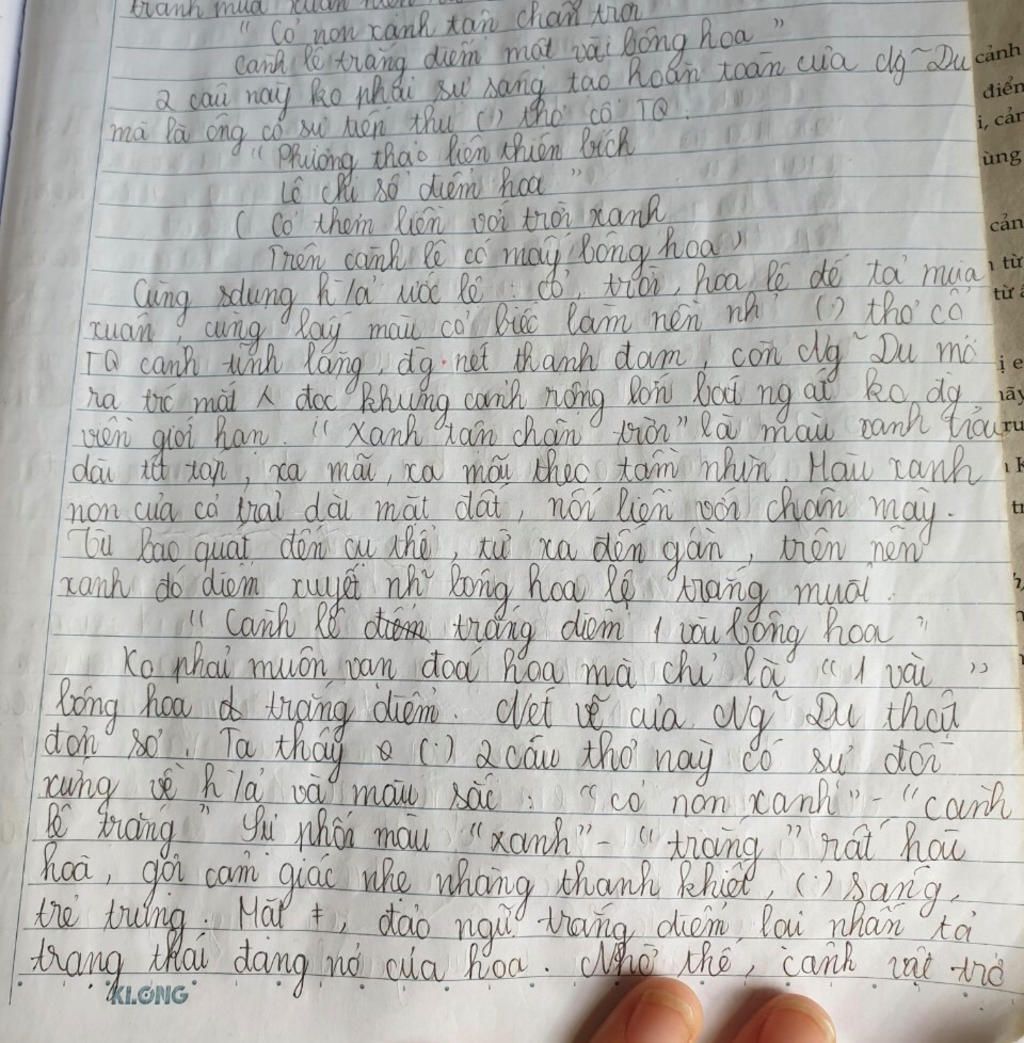 tranh mùa xuân
" Cỏ non xanh tận chân trời
Cành lê trắng điểm một vài bông hoa "
2 câu này ko phải sự sáng tạo hoàn toàn của Ng~ Du
mà là ông có sự tiếp thu (.) thơ cổ TQ.
" Phương thảo liên thiên bích
Lê chi sổ điểm hoa "
( Cỏ thơm liền với trời xanh
Trên cành lê có mấy bông hoa )
Cùng sdụng h/ả ước lệ : cỏ, trời, hoa lê để tả mùa
xuân, cùng lấy màu cỏ biếc làm nền nh' (.) thơ cổ
TQ cảnh tĩnh lặng, đg nét thanh đạm, còn Ng~ Du mở
ra trc mắt ng đọc khung cảnh rộng lớn bát ngát ko đg
viền giới hạn. " Xanh tận chân trời" là màu xanh trải
dài tít tắp, xa mãi, xa mãi theo tầm nhìn. Màu xanh
non của cỏ trải dài mặt đất, nối liền với chân mây.
Từ bao quát đến cụ thể, từ xa đến gần, trên nền
xanh đó điểm xuyết nh~ bông hoa lê trắng muốt.
" Cành lê trắng điểm 1 vài bông hoa "
Ko phải muôn vạn đoá hoa mà chỉ là " 1 vài "
bông hoa trắng điểm. Nét vẽ của Ng~ Du thật
đơn sơ. Ta thấy (.) 2 câu thơ này có sự đối
xứng về h/ả và màu sắc : "cỏ non xanh" - "cành
lê trắng" Sự phối màu "xanh" - "trắng" rất hài
hoà, gợi cảm giác nhẹ nhàng thanh khiết, (.) sáng,
trẻ trung. Mặt ≠, đảo ngữ trắng điểm lại nhấn tả
trạng thái đang nở của hoa. Nhờ thế, cảnh vật trở
KLONG
cảnh
điển
i, cản
ùng
cản
từ
từ
ị e
ru